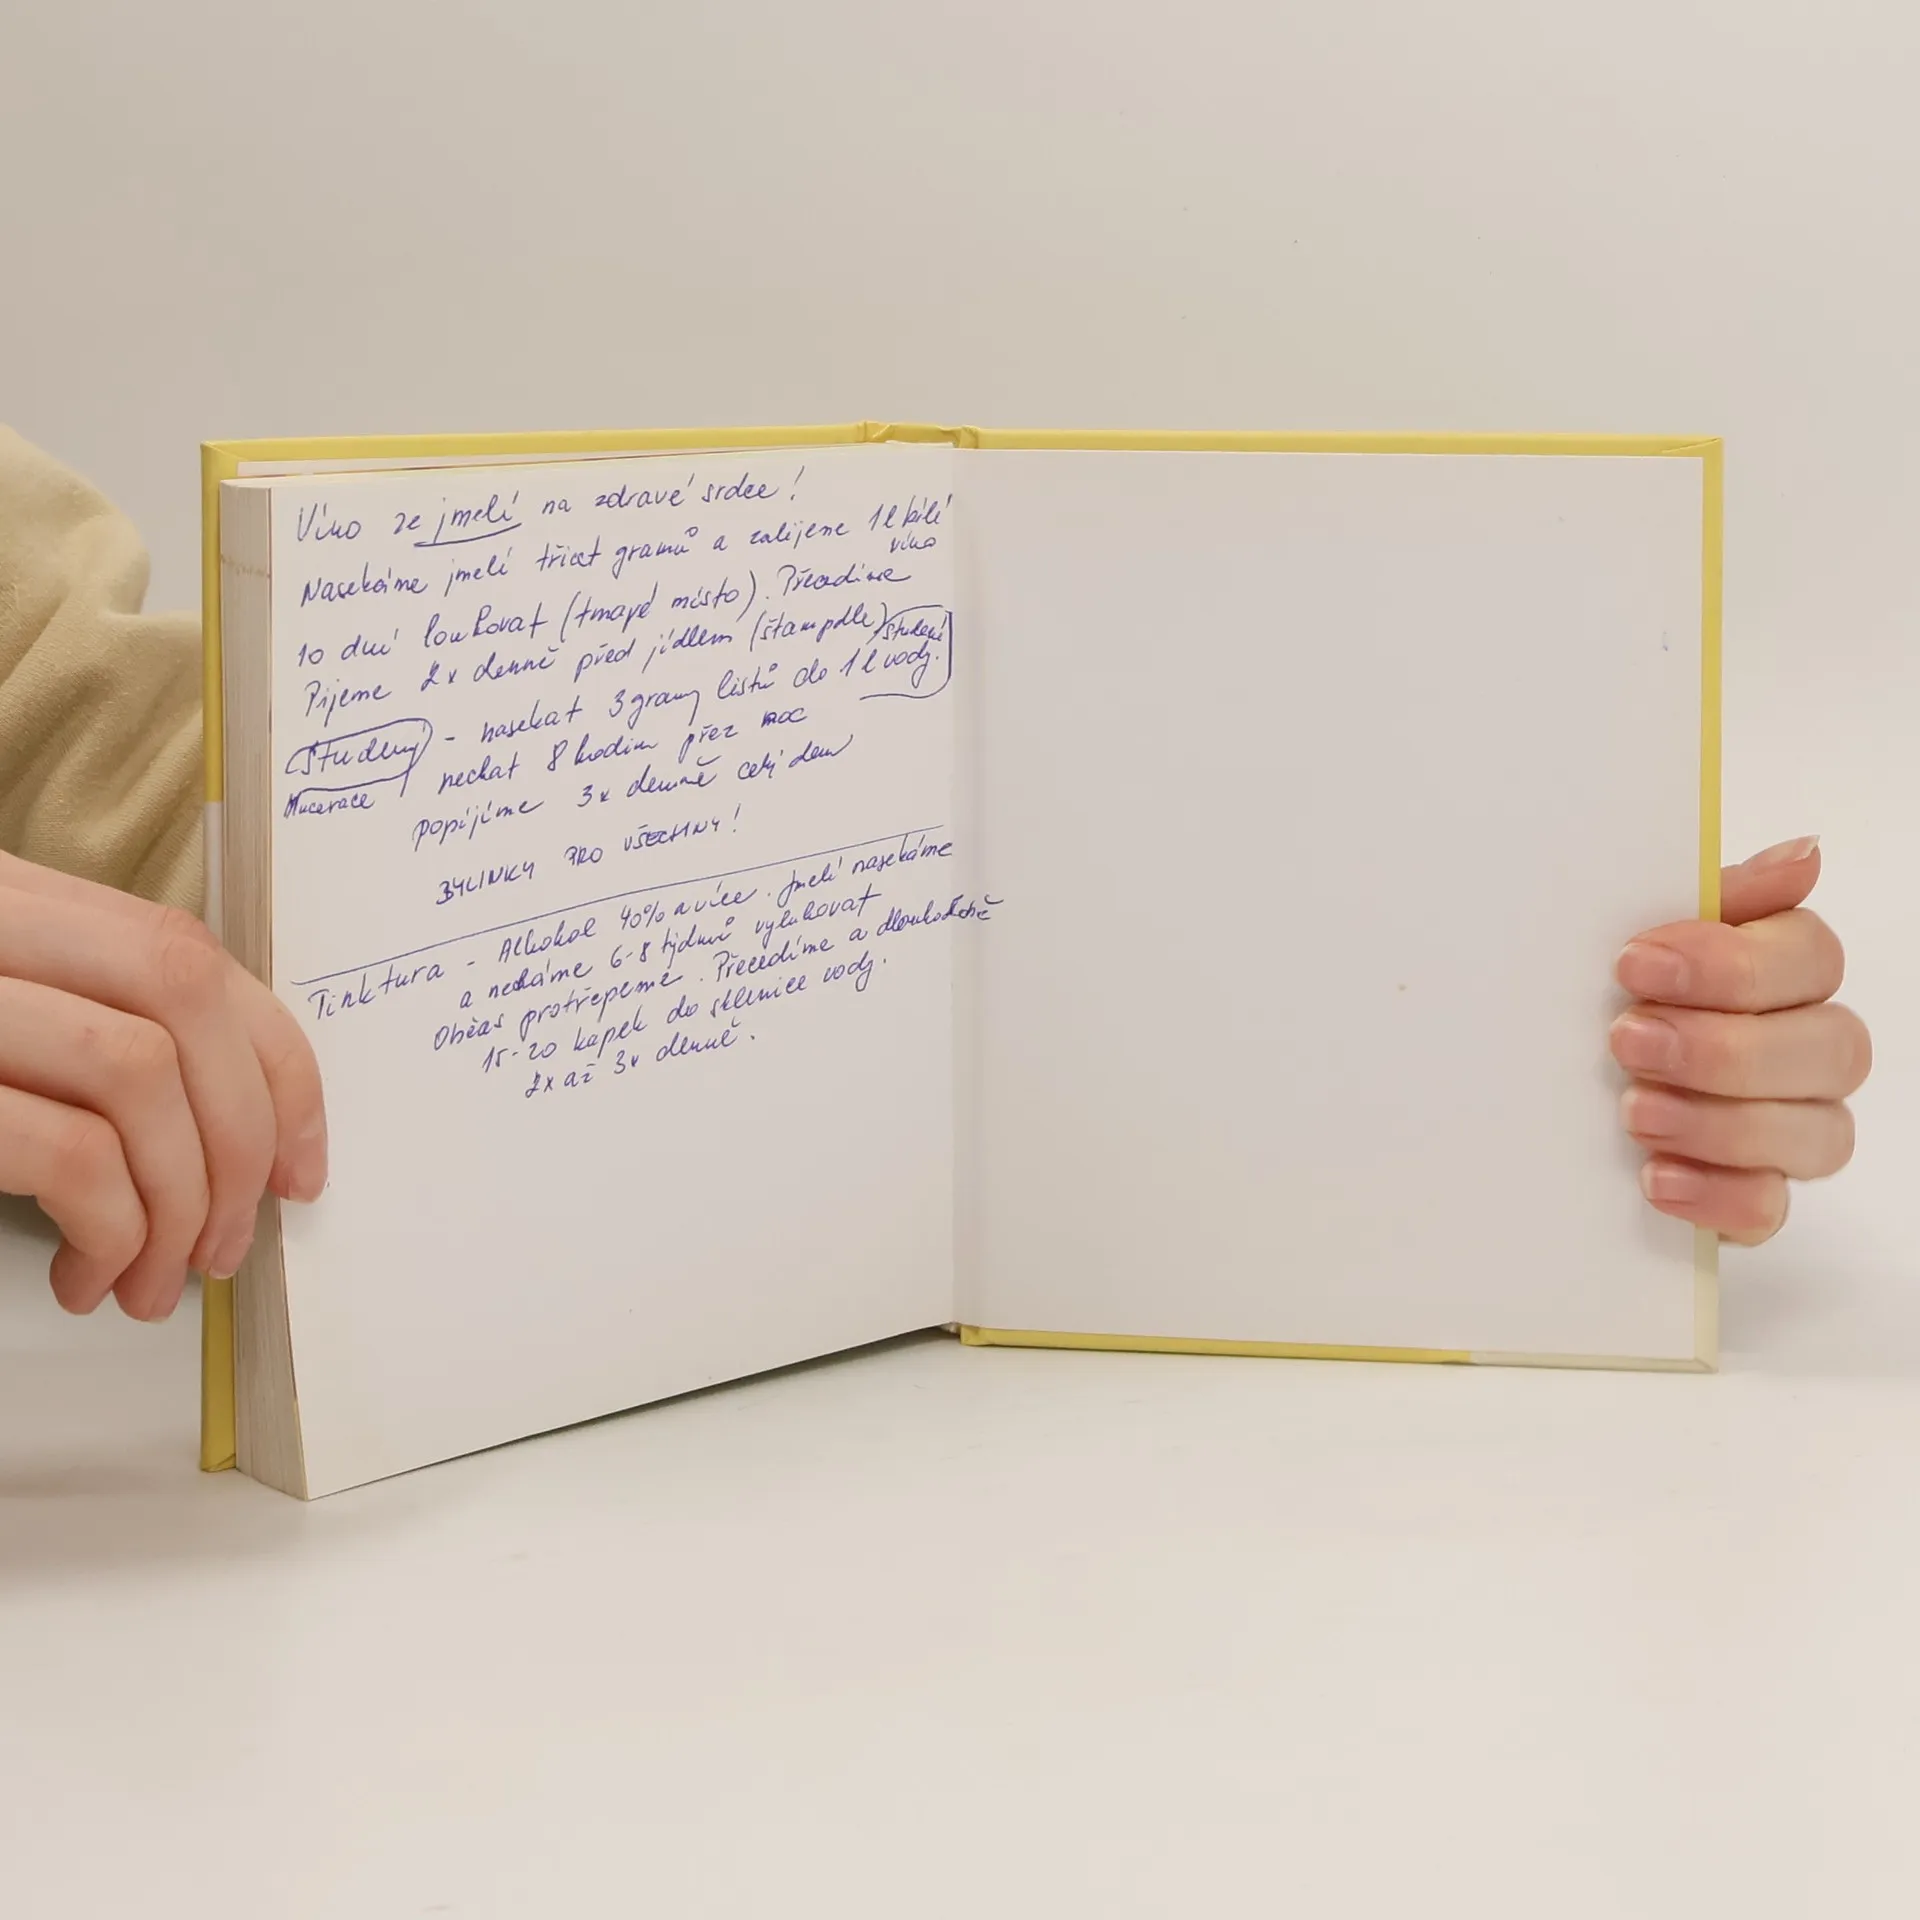 Víno ze jmelí na zdravé srdce!
Nasekáme jmelí třicet gramů a zalijeme 1l bílé
víno
10 dní louhovat (tmavé místo). Přecedíme
Pijeme 2x denně před jídlem (štamprdle)
studené
Studený - nasekat 3 gramy listů do 1l vody.
Macerace
nechat 8 hodin přez noc
popíjíme 3x denně celý den
BYLINKY PRO VŠECHNY!
Tinktura - Alkohol 40% a více. Jmelí nasekáme
a necháme 6-8 týdnů vyluhovat
Občas protřepeme. Přecedíme a dlouhodobě
15-20 kapek do sklenice vody.
2x až 3x denně.